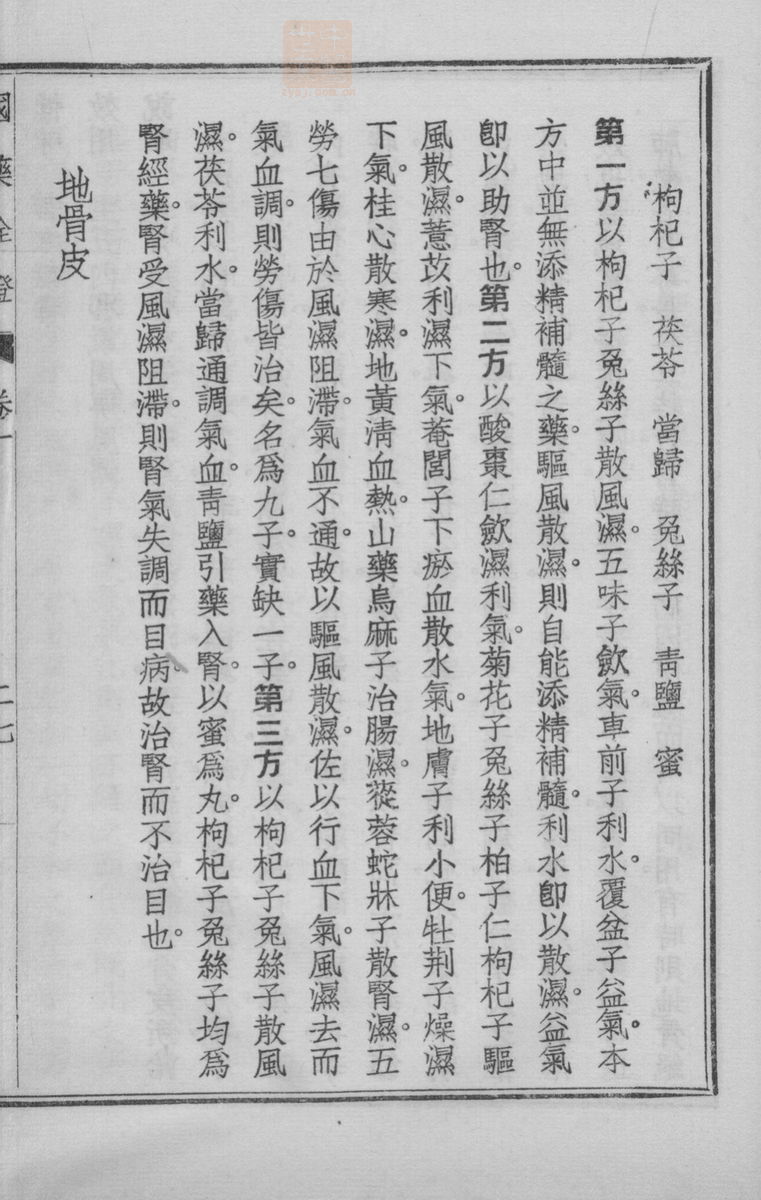 枸杞子　茯苓　當歸　兔絲子　靑鹽　蜜
第一方以枸杞子兔絲子散風濕。五味子歛氣。車前子利水。覆盆子益氣。本
方中並無添精補髓之藥。驅風散濕。則自能添精補髓。利水卽以散濕。益氣
卽以助腎也。第二方以酸棗仁歛濕利氣。菊花子兔絲子柏子仁枸杞子驅
風散濕。薏苡利濕下氣。菴閭子下瘀血散水氣。地膚子利小便。牡荆子燥濕
下氣。桂心散寒濕。地黃淸血熱。山藥烏麻子治腸濕。蓯蓉蛇牀子散腎濕。五
勞七傷由於風濕阻滯。氣血不通。故以驅風散濕。佐以行血下氣。風濕去而
氣血調。則勞傷皆治矣。名爲九子。實缺一子。第三方以枸杞子兔絲子散風
濕。茯苓利水。當歸通調氣血。靑鹽引藥入腎。以蜜爲丸。枸杞子兔絲子均爲
腎經藥。腎受風濕阻滯。則腎氣失調而目病。故治腎而不治目也。
地骨皮
國藥詮證　卷一　二七